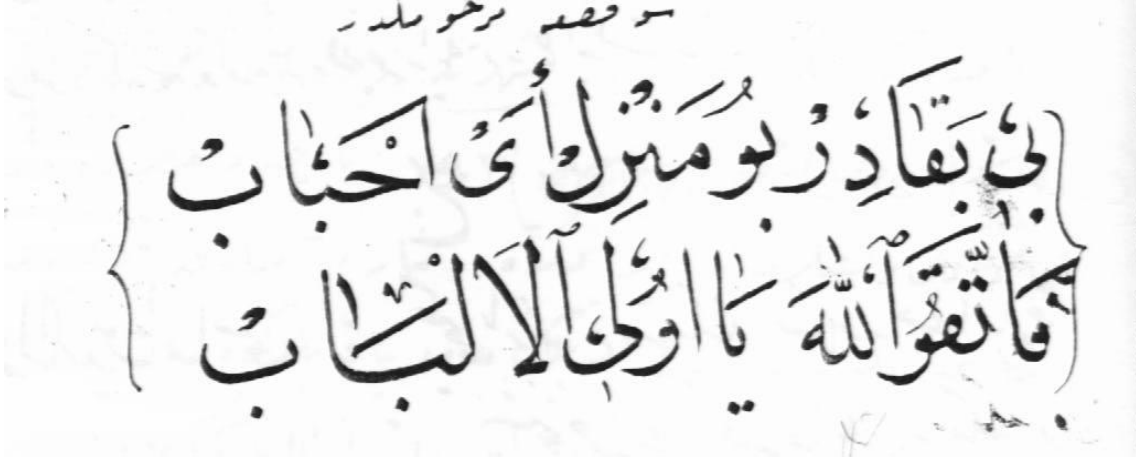 بِى بَقَادِرْ بُو مَنْزِلْ أَىْ اَحْبَابْ
فَاتَّقُوا ٱللّٰهَ يَا اُولِى ٱلْاَلْبَابْ